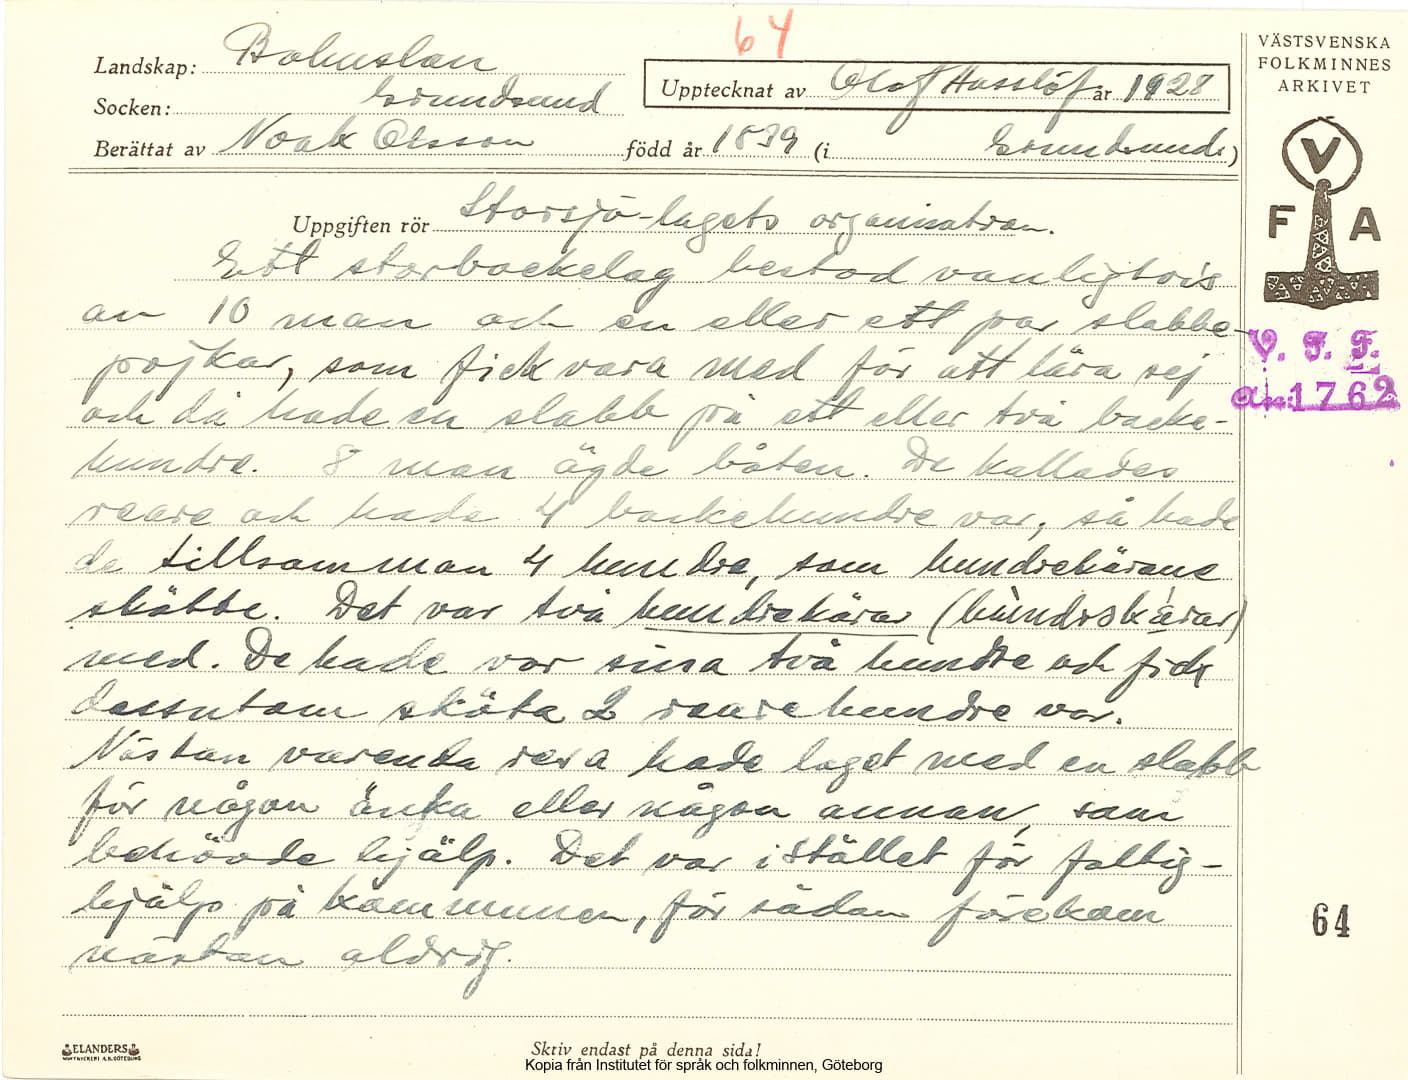 64
Landskap: Bohuslän
Socken: Grundsund
Upptecknat av Olof Hasslöf år 1928
Berättat av Noak Olsson född år 1839 (i Grundsund.)
VÄSTSVENSKA
FOLKMINNES
ARKIVET
V
F A
V. F. F.
an: 1762
Uppgiften rör Storsjö-lagets organisation.
Ett storbackelag bestod vanligtvis
av 10 man och en eller ett par slabbe-
pojkar, som fick vara med för att lära sej
och då hade en slabb på ett eller två backe-
hundre. 8 man ägde båten. De kallades
reare och hade 4 backehundre var, så hade
de tillsamman 4 hundre, som hundrekärane
skötte. Det var två hundrekärar (hùndrskárar)
med. De hade var sina två hundre och fick
dessutom sköta 2 rearehundre var.
Nästan varenda resa hade laget med en slabb
för någon änka eller någon annan, som
behövde hjälp. Det var istället för fattig-
hjälp på kommunen, för sådan förekom
nästan aldrig.
64
ELANDERS
BOKTRYCKERI A.B. GÖTEBORG
Skriv endast på denna sida!
Kopia från Institutet för språk och folkminnen, Göteborg